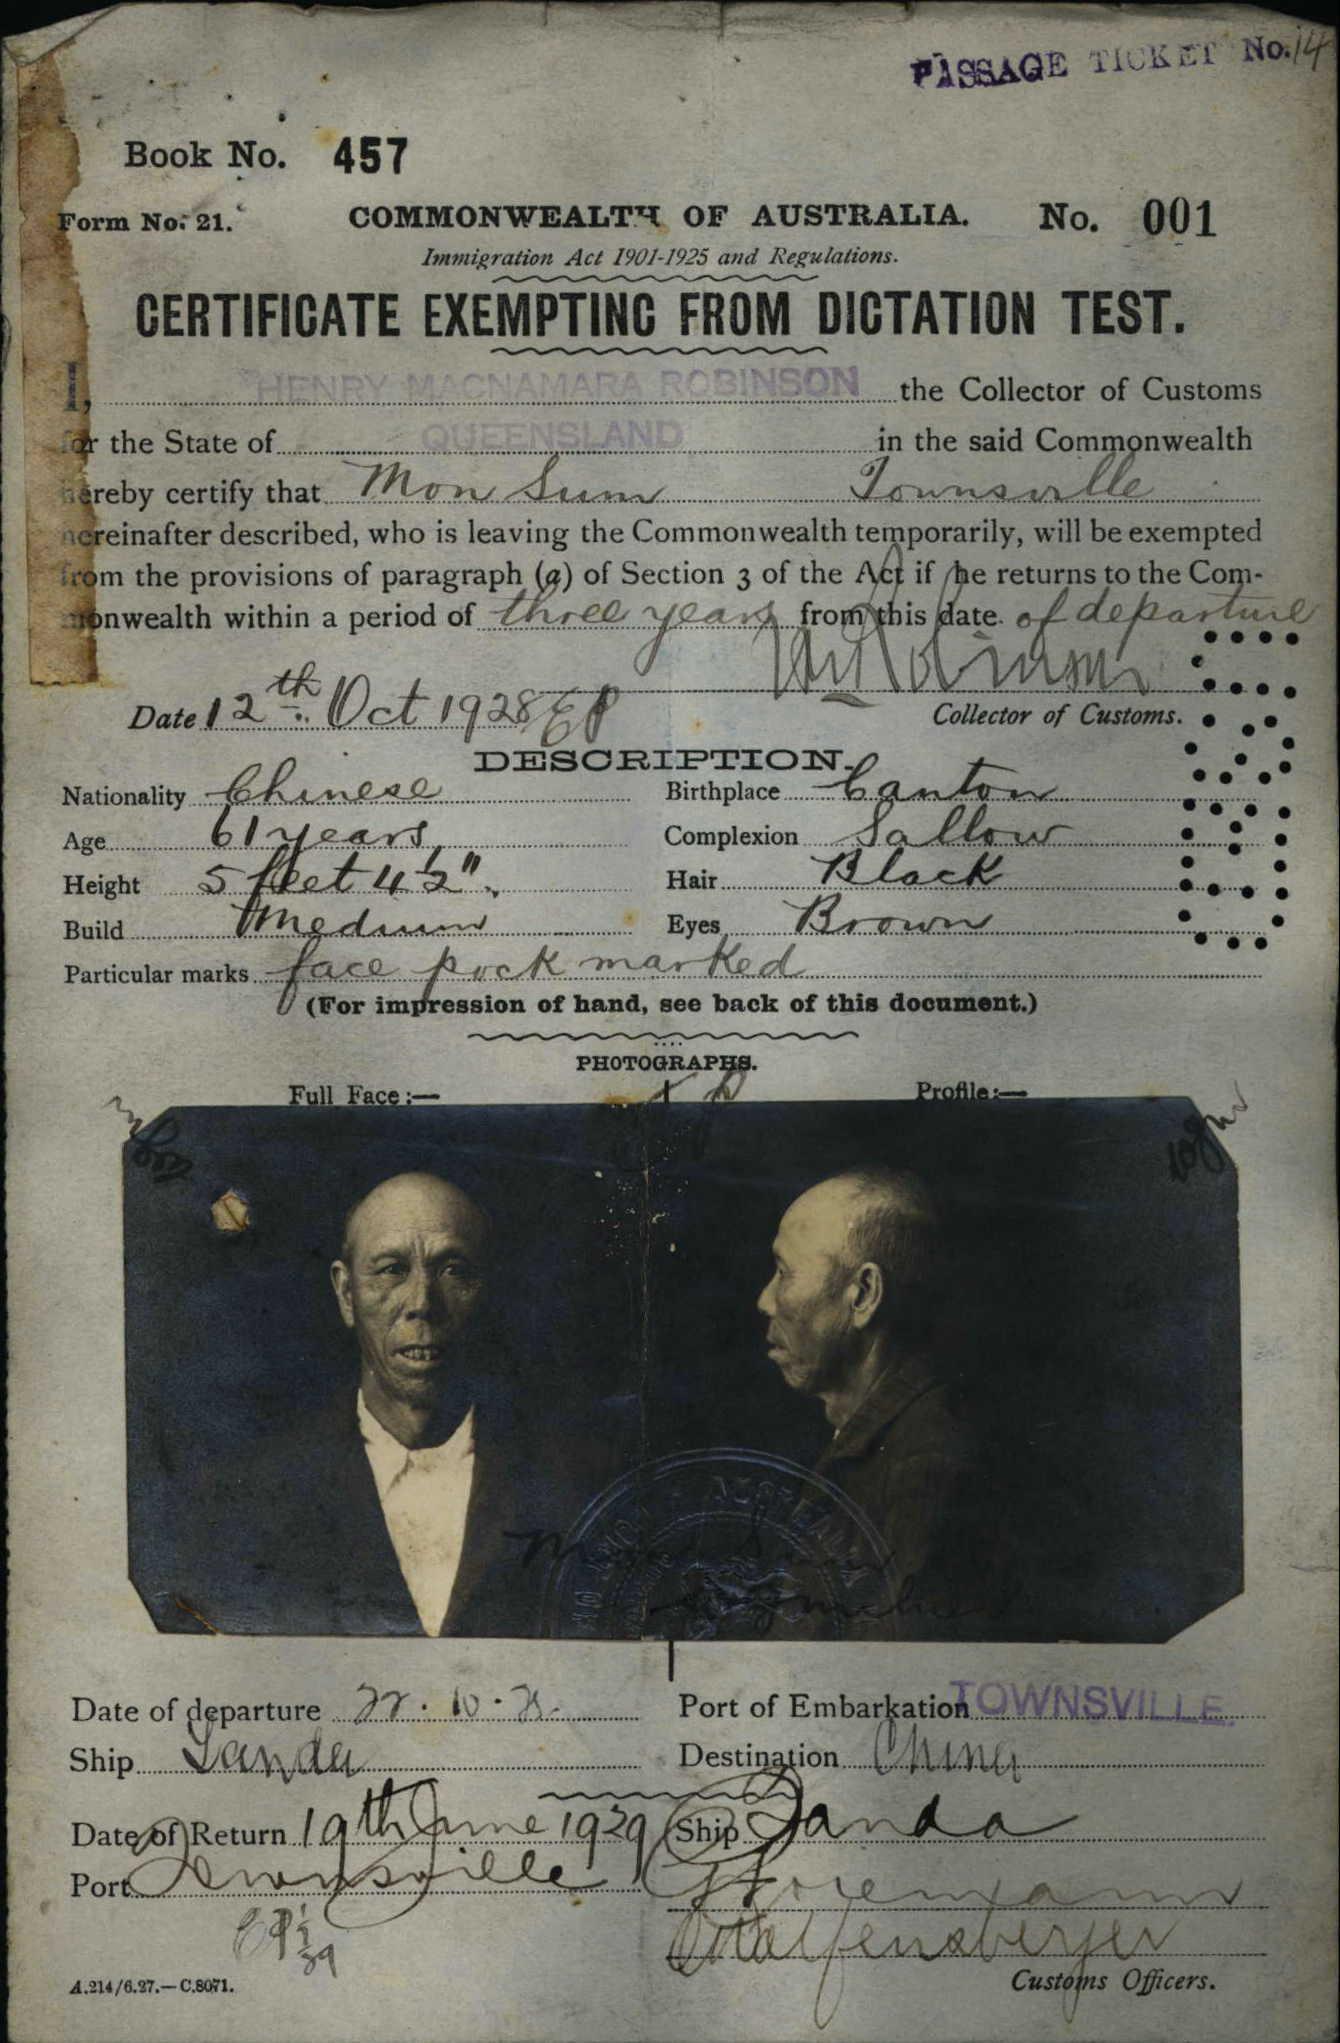 PASSAGE TICKET No. 14
Book No. 457
Form No. 21. COMMONWEALTH OF AUSTRALIA. No. 001
Immigration Act 1901-1925 and Regulations.
CERTIFICATE EXEMPTING FROM DICTATION TEST.
I, HENRY MACNAMARA ROBINSON the Collector of Customs
for the State of QUEENSLAND in the said Commonwealth
hereby certify that Mon Sum Townsville
hereinafter described, who is leaving the Commonwealth temporarily, will be exempted
from the provisions of paragraph (a) of Section 3 of the Act if he returns to the Com-
monwealth within a period of three years from this date of departure
Date 12th Oct 1928
Collector of Customs.
DESCRIPTION.
Nationality Chinese Birthplace Canton
Age 61 years Complexion Sallow
Height 5 feet 4½". Hair Black
Build Medium Eyes Brown
Particular marks face pock marked
(For impression of hand, see back of this document.)
PHOTOGRAPHS.
Full Face:— Profile:—
Date of departure 22.10.28. Port of Embarkation TOWNSVILLE.
Ship Tanda Destination China
Date of Return 19th June 1929 Ship Tanda
Port Townsville
A.214/6.27.—C.8071. Customs Officers.